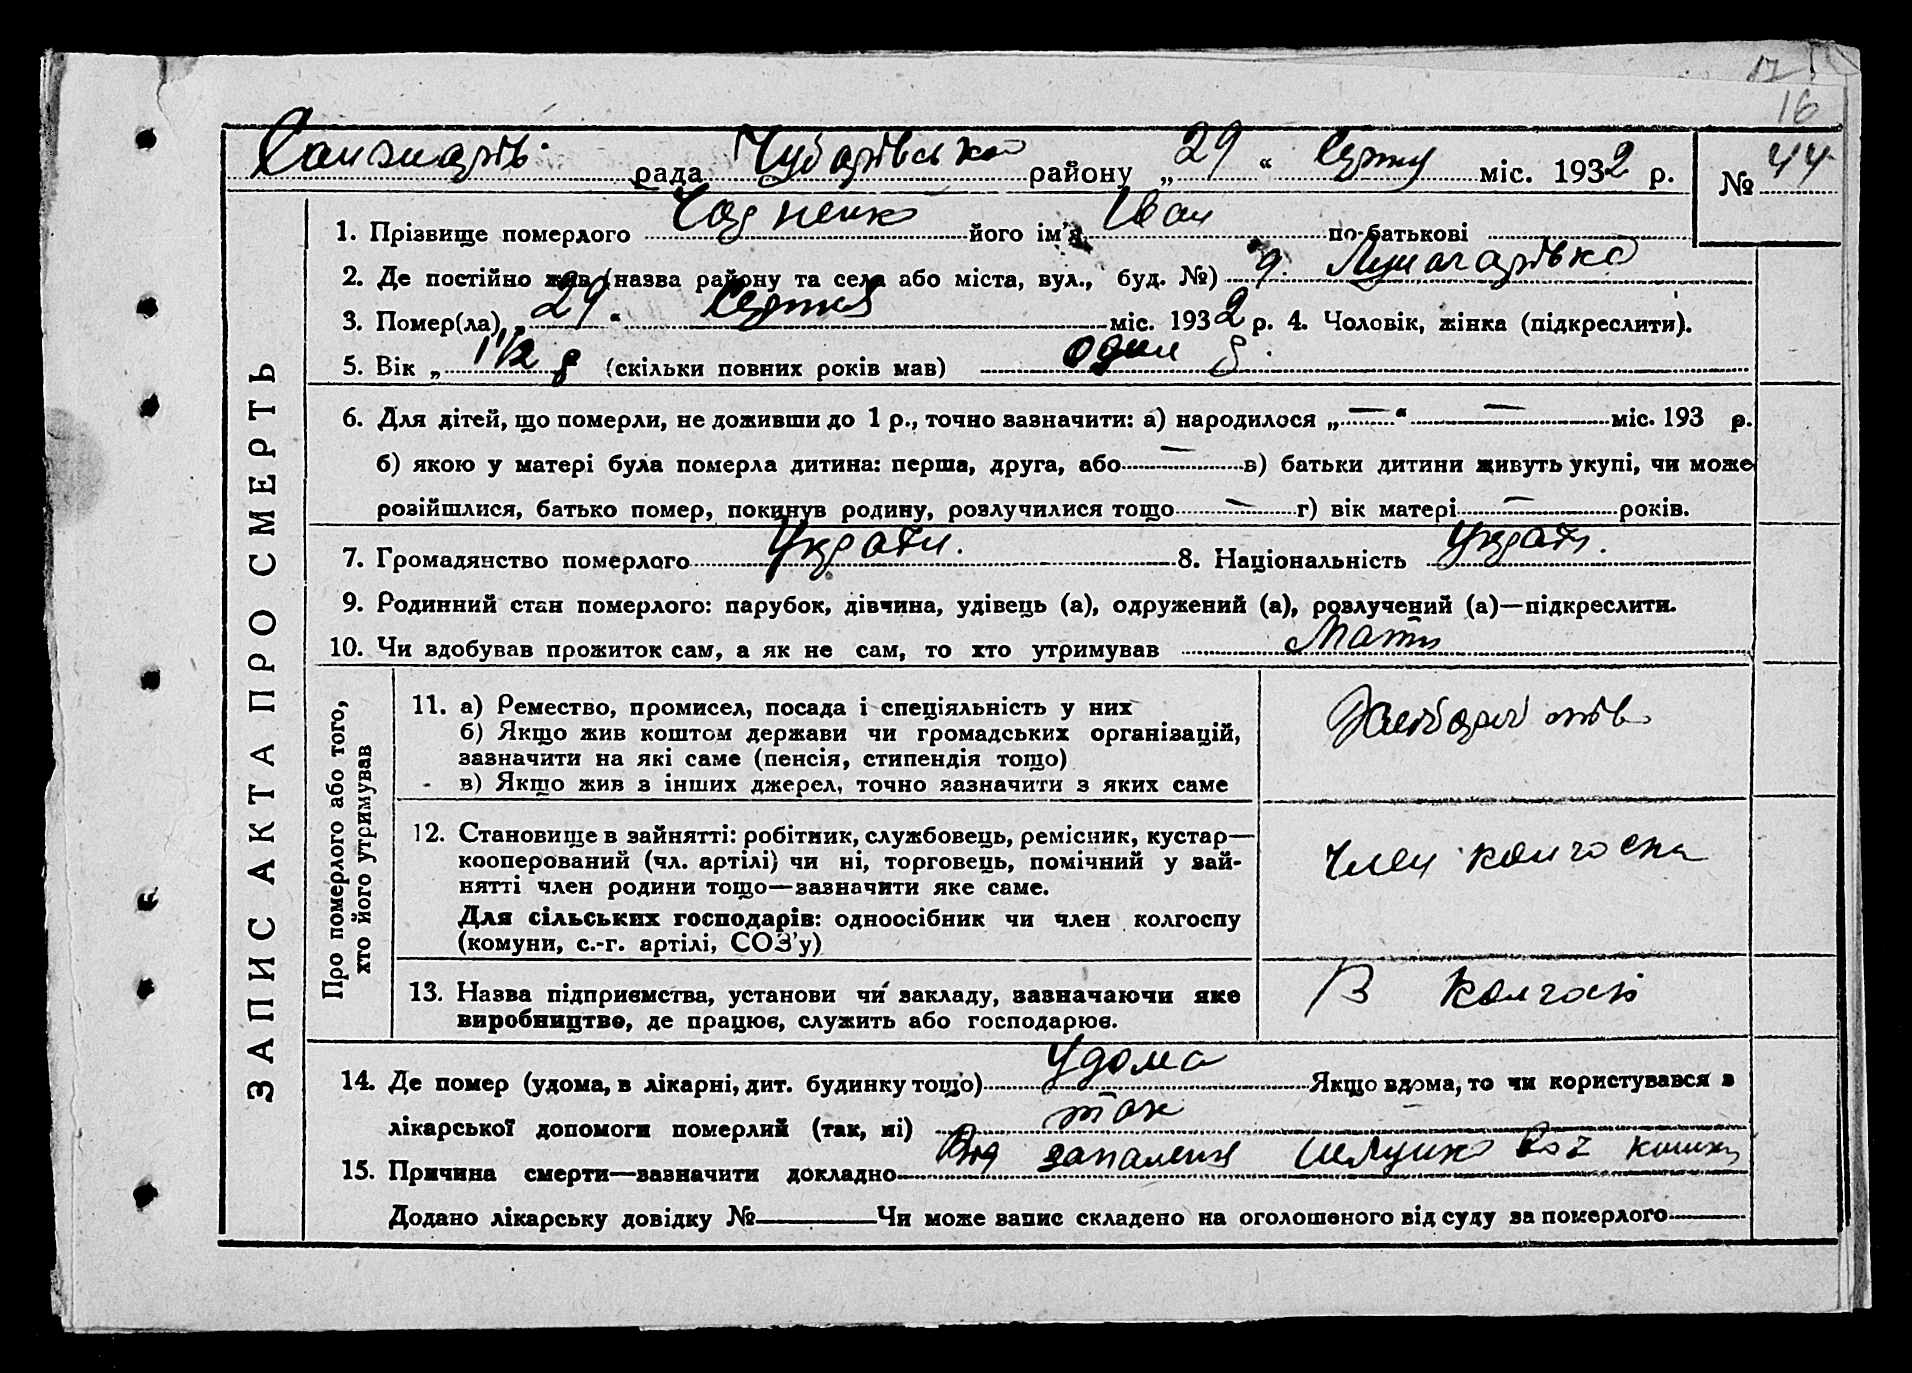 16
рада Чубарівська району „29“ Серпня міс. 1932 р. № 44
1. Прізвище померлого його ім'я Іван по-батькові
2. Де постійно жив (назва району та села або міста, вул., буд. №)
3. Помер(ла) „29“ Серпня міс. 1932 р. 4. Чоловік, жінка (підкреслити).
5. Вік „1 1/2 р (скільки повних років мав) один р.
6. Для дітей, що померли, не доживши до 1 р., точно зазначити: а) народилося „—“ — міс. 193 р.
б) якою у матері була померла дитина: перша, друга, або — в) батьки дитини живуть укупі, чи може
розійшлися, батько помер, покинув родину, розлучилися тощо — г) вік матері — років.
7. Громадянство померлого 8. Національність
9. Родинний стан померлого: парубок, дівчина, удівець (а), одружений (а), розлучений (а)—підкреслити.
10. Чи здобував прожиток сам, а як не сам, то хто утримував Мати
ЗАПИС АКТА ПРО СМЕРТЬ
Про померлого або того,
хто його утримував
11. а) Ремество, промисел, посада і спеціяльність у них
б) Якщо жив коштом держави чи громадських організацій,
зазначити на які саме (пенсія, стипендія тощо)
в) Якщо жив з інших джерел, точно зазначити з яких саме
12. Становище в зайнятті: робітник, службовець, ремісник, кустар—
кооперований (чл. артілі) чи ні, торговець, помічний у зай-
нятті член родини тощо—зазначити яке саме.
Для сільських господарів: одноосібник чи член колгоспу
(комуни, с.-г. артілі, СОЗ'у)
Член колгоспа
13. Назва підприємства, установи чи закладу, зазначаючи яке
виробництво, де працює, служить або господарює.
В колгосі
14. Де помер (удома, в лікарні, дит. будинку тощо) Удома Якщо вдома, то чи користувався з
лікарської допомоги померлий (так, ні) так
15. Причина смерти—зазначити докладно Від запалення
Додано лікарську довідку №— Чи може запис складено на оголошеного від суду за померлого—